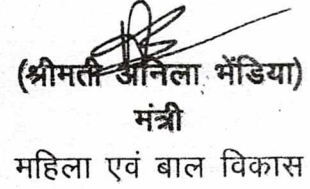 (श्रीमती अनिला भेंडिया)
मंत्री
महिला एवं बाल विकास